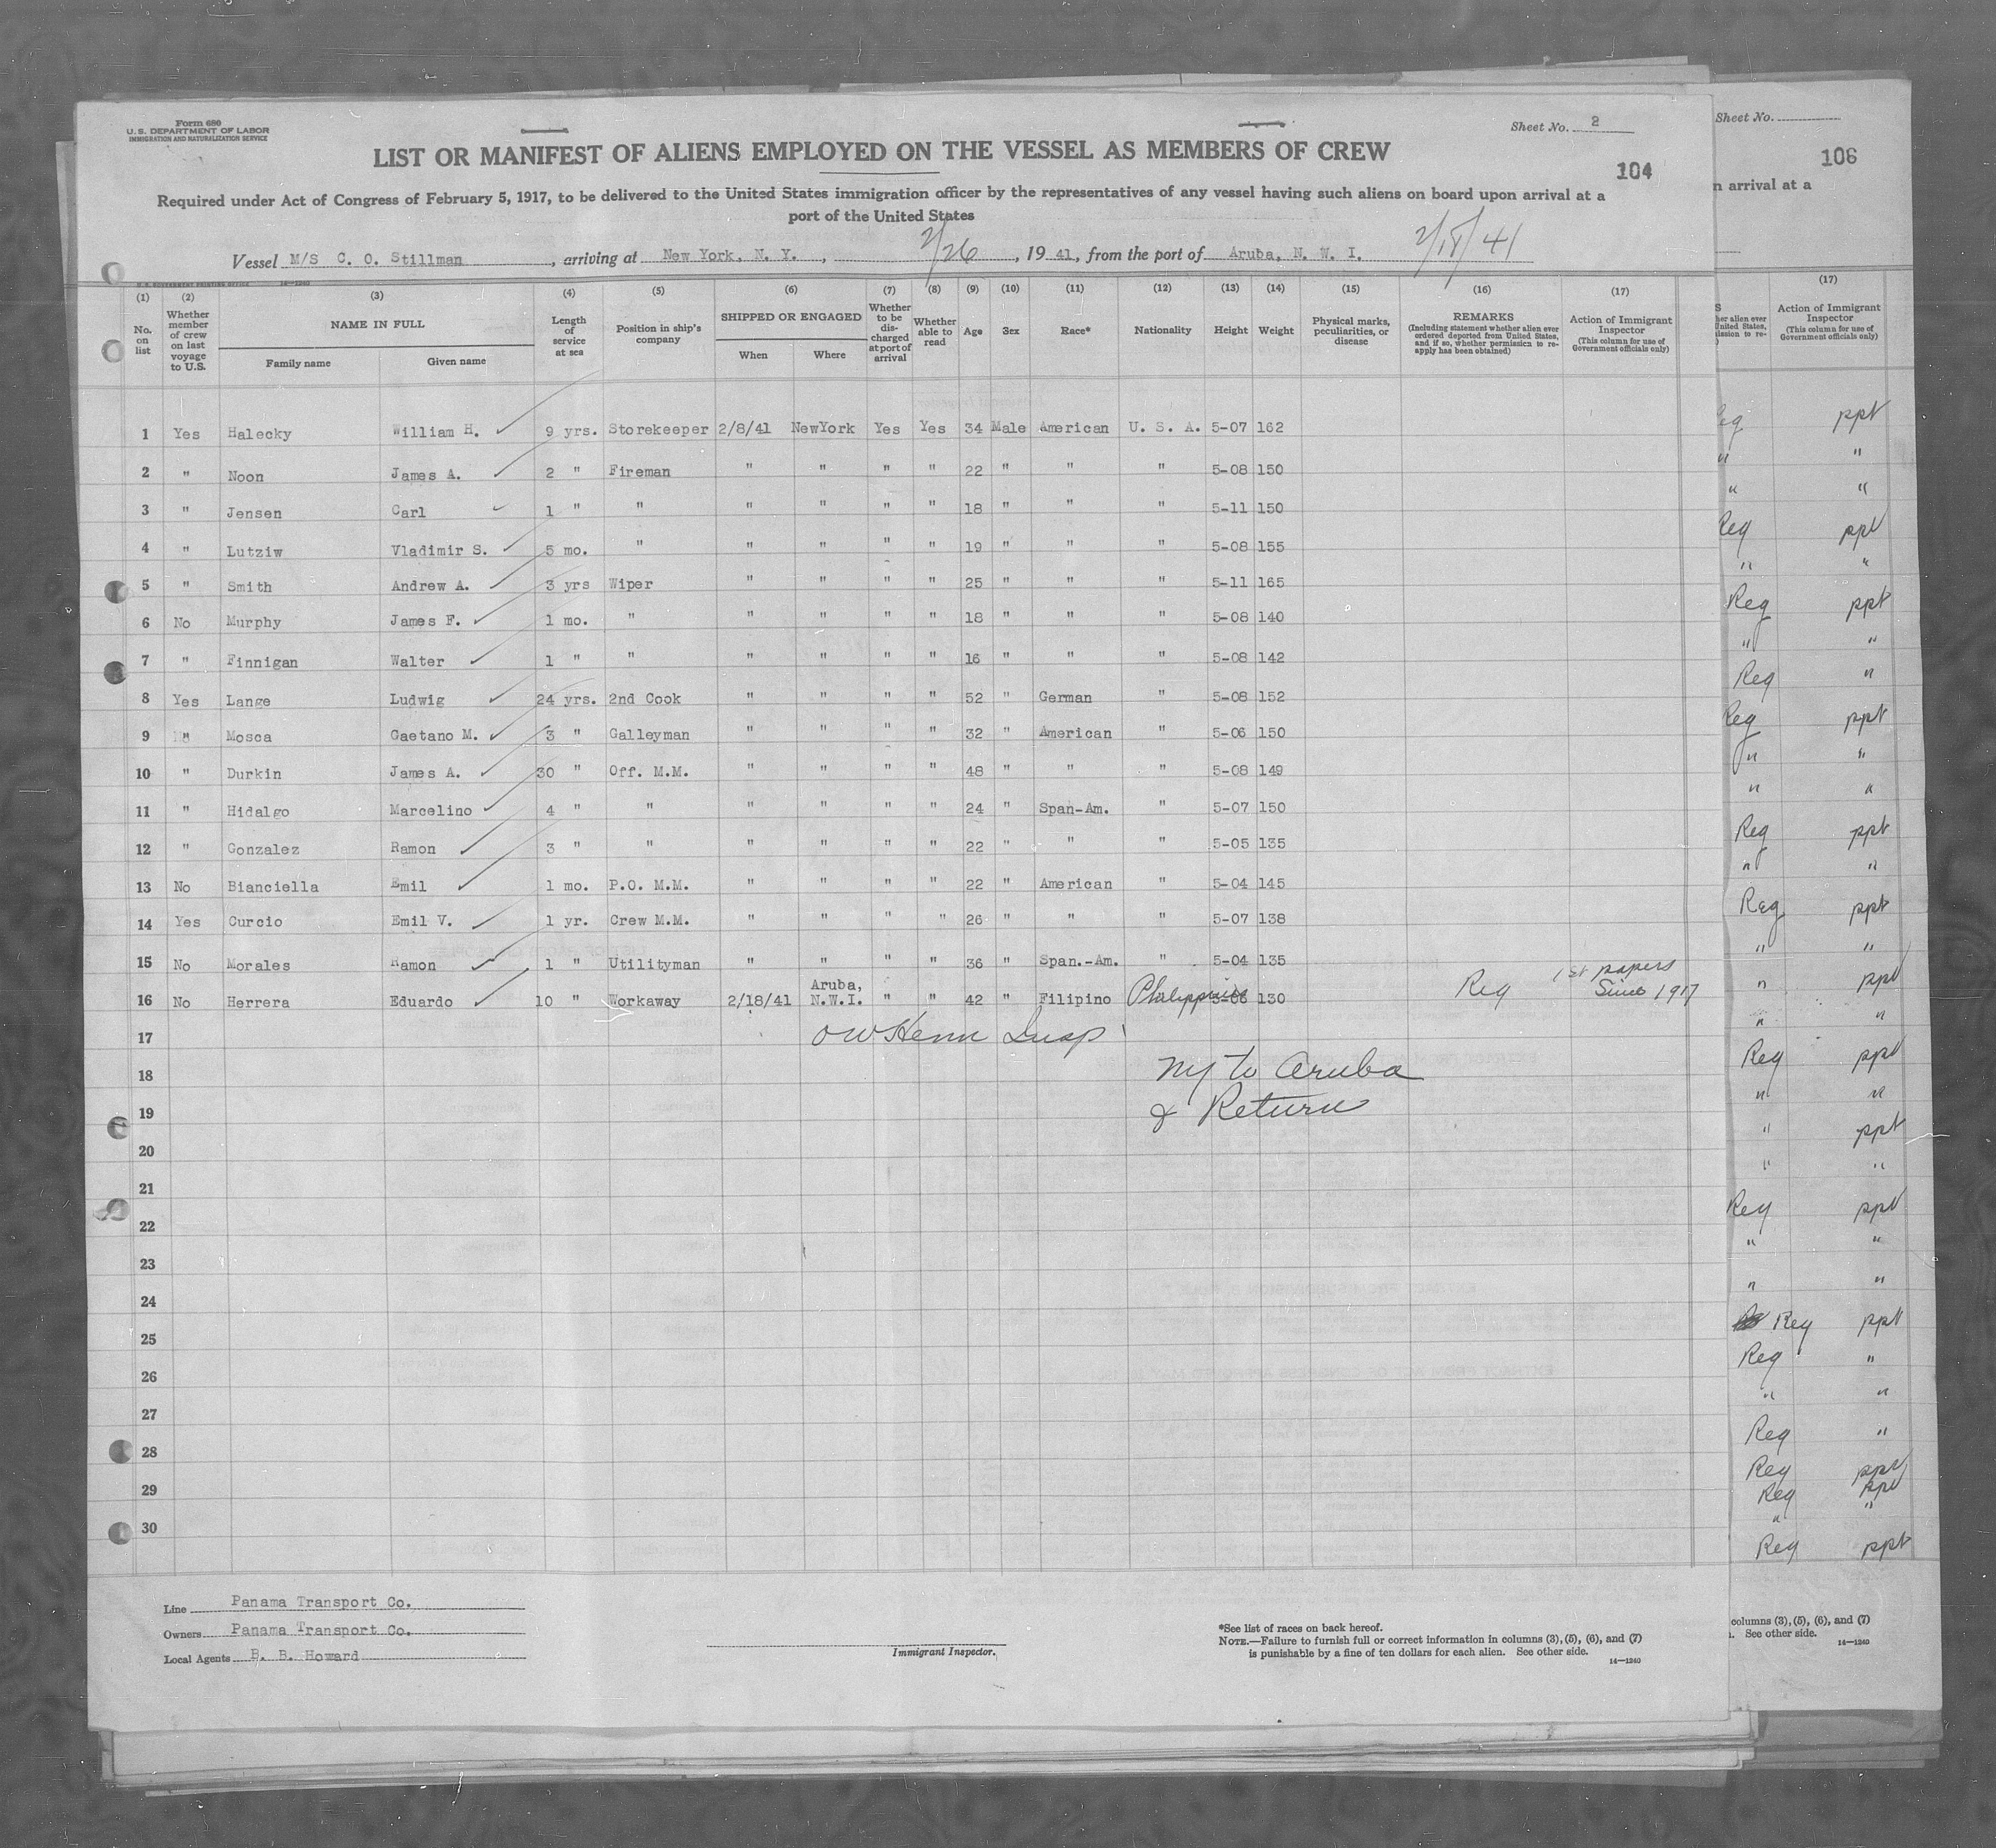 Form 680
U. S. DEPARTMENT OF LABOR
IMMIGRATION AND NATURALIZATION SERVICE
Sheet No. 2
LIST OR MANIFEST OF ALIENS EMPLOYED ON THE VESSEL AS MEMBERS OF CREW
104
Required under Act of Congress of February 5, 1917, to be delivered to the United States immigration officer by the representatives of any vessel having such aliens on board upon arrival at a
port of the United States
Vessel M/S C. O. Stillman, arriving at New York, N. Y., 2/26, 1941, from the port of Aruba, N. W. I. 2/18/41
U. S. GOVERNMENT PRINTING OFFICE 14—1240
(1) No. on list
(2) Whether member of crew on last voyage to U.S.
(3) NAME IN FULL Family name Given name
(4) Length of service at sea
(5) Position in ship's company
(6) SHIPPED OR ENGAGED When Where
(7) Whether to be discharged at port of arrival
(8) Whether able to read
(9) Age
(10) Sex
(11) Race*
(12) Nationality
(13) Height
(14) Weight
(15) Physical marks, peculiarities, or disease
(16) REMARKS (Including statement whether alien ever ordered deported from United States, and if so, whether permission to reapply has been obtained)
(17) Action of Immigrant Inspector (This column for use of Government officials only)
1 Yes Halecky William H. 9 yrs. Storekeeper 2/8/41 NewYork Yes Yes 34 Male American U. S. A. 5-07 162
2 " Noon James A. 2 " Fireman " " " " 22 " " " 5-08 150
3 " Jensen Carl 1 " " " " " " 18 " " " 5-11 150
4 " Lutziw Vladimir S. 5 mo. " " " " " 19 " " " 5-08 155
5 " Smith Andrew A. 3 yrs Wiper " " " " 25 " " " 5-11 165
6 No Murphy James F. 1 mo. " " " " " 18 " " " 5-08 140
7 " Finnigan Walter 1 " " " " " " 16 " " " 5-08 142
8 Yes Lange Ludwig 24 yrs. 2nd Cook " " " " 52 " German " 5-08 152
9 " Mosca Gaetano M. 3 " Galleyman " " " " 32 " American " 5-06 150
10 " Durkin James A. 30 " Off. M.M. " " " " 48 " " " 5-08 149
11 " Hidalgo Marcelino 4 " " " " " " 24 " Span-Am. " 5-07 150
12 " Gonzalez Ramon 3 " " " " " " 22 " " " 5-05 135
13 No Bianciella Emil 1 mo. P.O. M.M. " " " " 22 " American " 5-04 145
14 Yes Curcio Emil V. 1 yr. Crew M.M. " " " " 26 " " " 5-07 138
15 No Morales Ramon 1 " Utilityman " " " " 36 " Span.-Am. " 5-04 135
16 No Herrera Eduardo 10 " Workaway 2/18/41 Aruba, N.W.I. " " 42 " Filipino Philippines 130 Reg 1st papers Since 1917
17
18 NY to Aruba
19 & Return
20
21
22
23
24
25
26
27
28
29
30
Line Panama Transport Co.
Owners Panama Transport Co.
Local Agents B. B. Howard
Immigrant Inspector.
*See list of races on back hereof.
NOTE.—Failure to furnish full or correct information in columns (3), (5), (6), and (7)
is punishable by a fine of ten dollars for each alien. See other side.
14—1240
Sheet No.
106
n arrival at a
(17)
Action of Immigrant Inspector
(This column for use of Government officials only)
eg ppt
" "
" "
Reg ppt
" "
Reg ppt
" "
Reg "
Reg ppt
" "
" "
Reg ppt
" "
Reg ppt
" "
" ppt
" "
Reg ppt
" "
" ppt
" "
Reg ppt
" "
" "
Reg ppt
Reg "
" "
Reg "
Reg ppt
Reg ppt
" "
Reg ppt
columns (3), (5), (6), and (7)
See other side.
14—1240